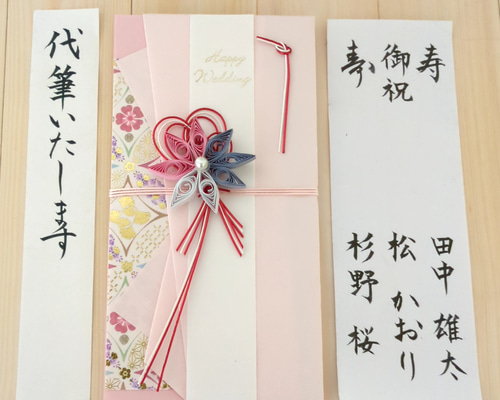 代筆いたします
Happy
Wedding
寿
御祝
寿
田中 雄太
松 かおり
杉野 桜